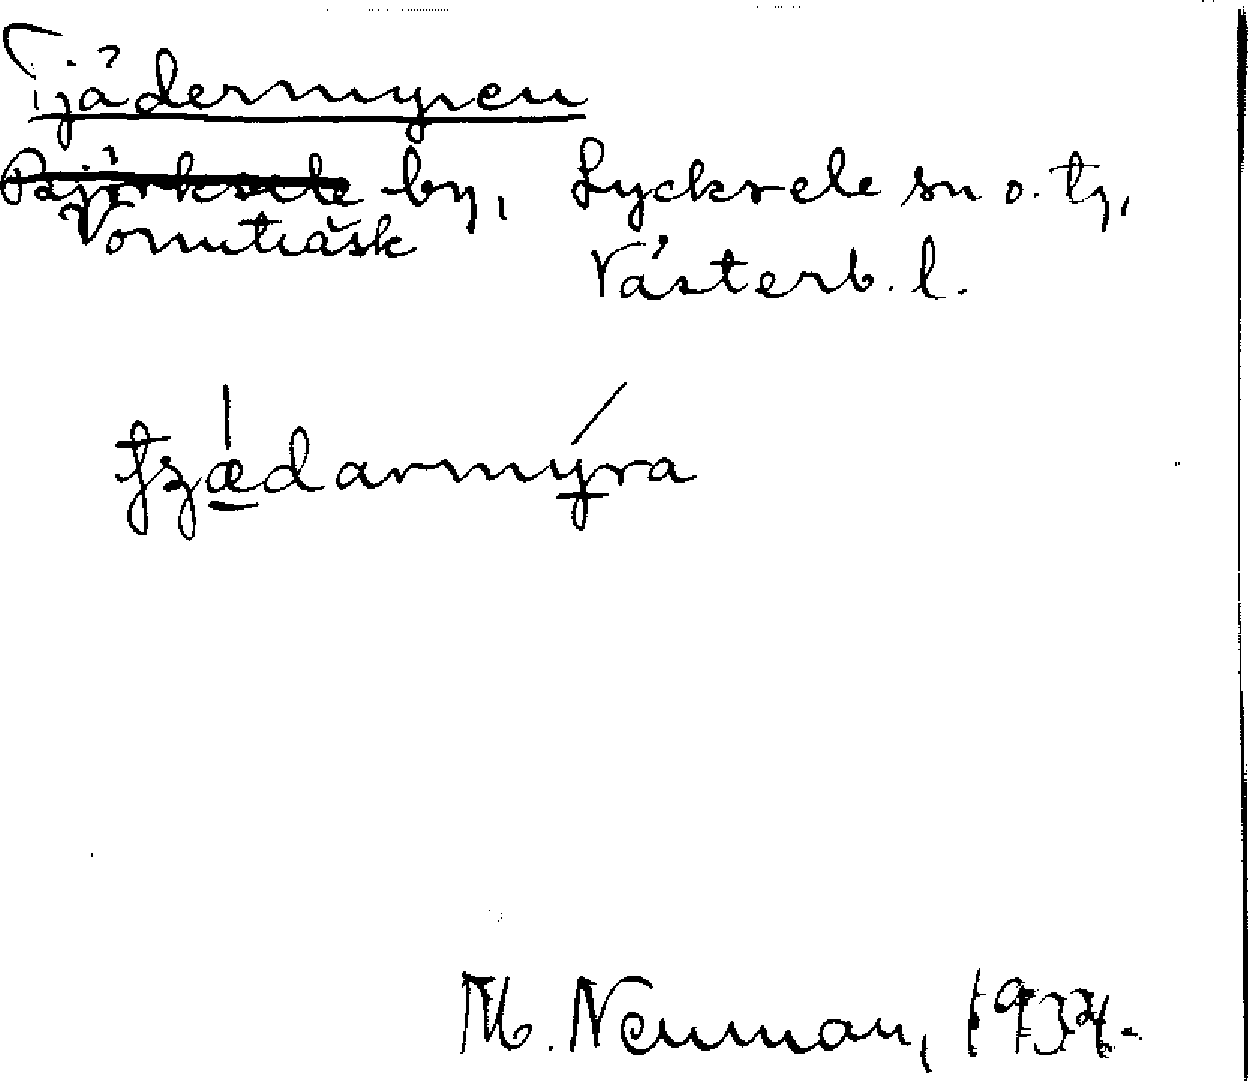 Tjädermyren
Björksele by, Lycksele sn o. tg,
Vormträsk Västerb. l.
tʒædarmýra
M. Neuman, 1934.